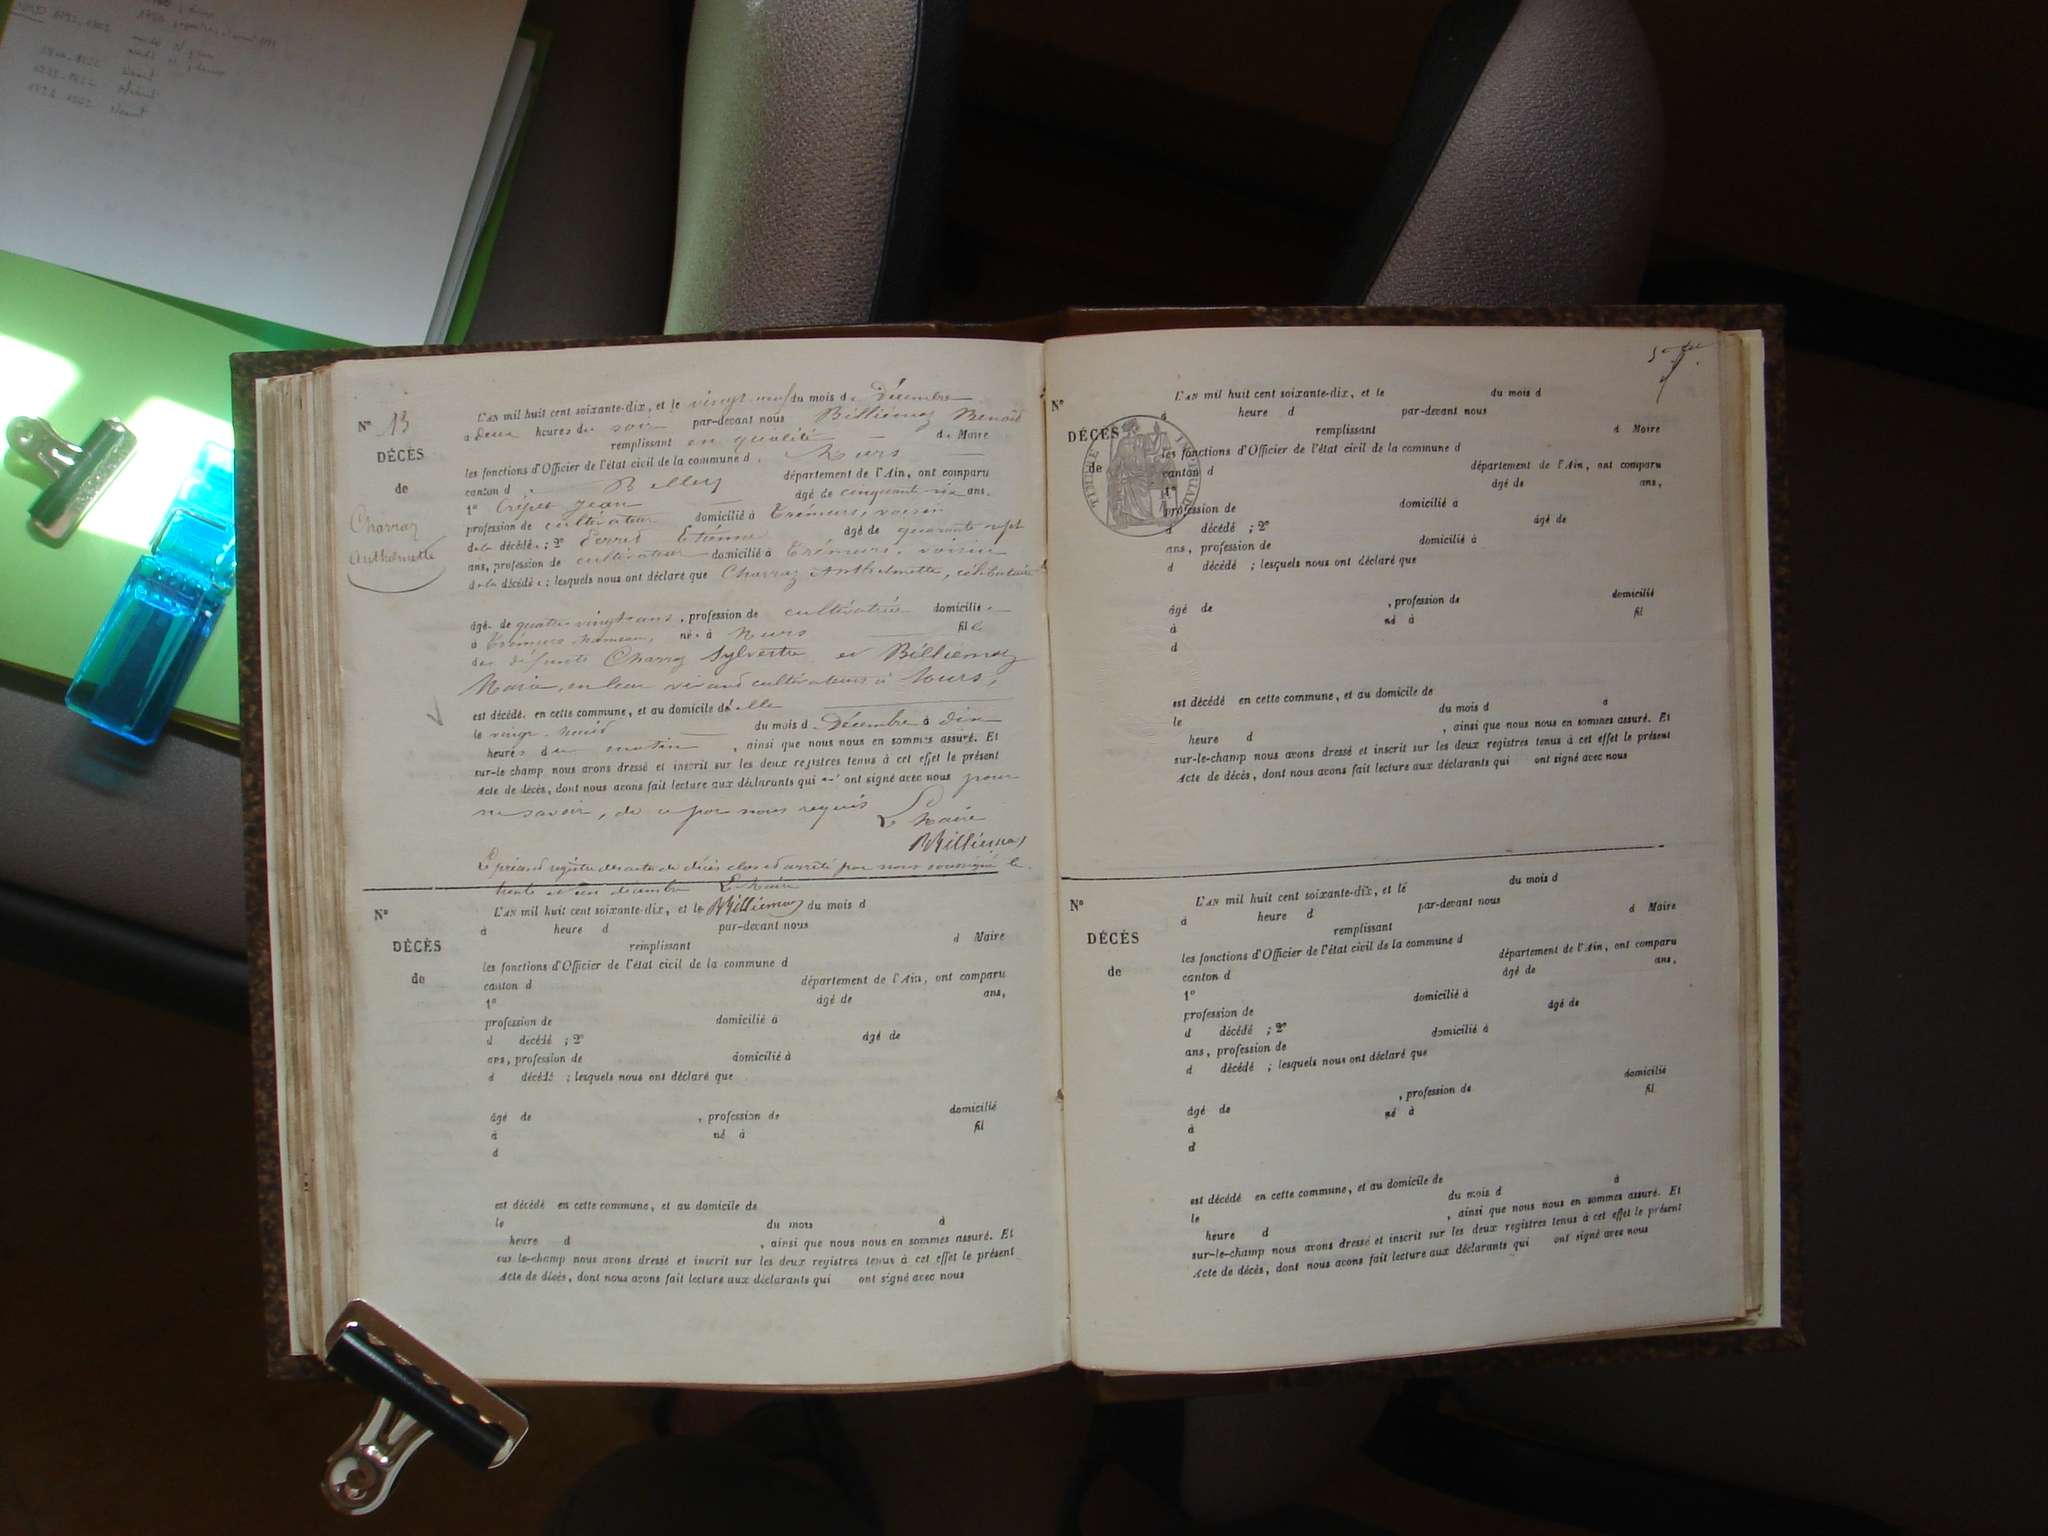 N° 13
DÉCÈS
de
Charraz
Anthelmette
L'AN mil huit cent soixante-dix, et le vingt neuf du mois de Décembre
à deux heures du soir par-devant nous Billiémaz Benoît
remplissant en qualité de Maire
les fonctions d'Officier de l'état civil de la commune d
canton d Belley département de l'Ain, ont comparu
1° Crépet Jean âgé de cinquante six ans,
profession de cultivateur domicilié à Trémurs, voisin
de la décédée ; 2° Etienne âgé de quarante sept
ans, profession de cultivateur domicilié à Trémurs, voisin
de la décédée ; lesquels nous ont déclaré que Charraz Anthelmette, célibataire
âgée de quatre vingts ans, profession de cultivatrice domiciliée
à Trémurs hameau, née à fille
des défunts Charraz Sylvestre et Billiémaz
Marie, en leur vivant cultivateurs à
est décédée en cette commune, et au domicile d'elle
le vingt-neuf du mois de Décembre à dix
heures du matin, ainsi que nous nous en sommes assuré. Et
sur-le champ nous avons dressé et inscrit sur les deux registres tenus à cet effet le présent
Acte de décès, dont nous avons fait lecture aux déclarants qui n' ont signé avec nous pour
ne savoir, de ce par nous requis Le Maire
Billiémaz
Le présent registre des actes de décès clos et arrêté par nous soussigné le
trente et un décembre Le Maire
Billiémaz
N°
DÉCÈS
de
L'AN mil huit cent soixante-dix, et le du mois d
à heure d par-devant nous
remplissant d Maire
les fonctions d'Officier de l'état civil de la commune d
canton d département de l'Ain, ont comparu
1° âgé de ans,
profession de domicilié à
d décédé ; 2° âgé de
ans, profession de domicilié à
d décédé ; lesquels nous ont déclaré que
âgé de , profession de domicilié
à né à fil
d
est décédé en cette commune, et au domicile de
le du mois d à
heure d , ainsi que nous nous en sommes assuré. Et
sur le-champ nous avons dressé et inscrit sur les deux registres tenus à cet effet le présent
Acte de décès, dont nous avons fait lecture aux déclarants qui ont signé avec nous
N°
DÉCÈS
de
TIMBRE IMPÉRIAL
L'AN mil huit cent soixante-dix, et le du mois d
à heure d par-devant nous
remplissant d Maire
les fonctions d'Officier de l'état civil de la commune d
canton d département de l'Ain, ont comparu
1° âgé de ans,
profession de domicilié à
d décédé ; 2° âgé de
ans, profession de domicilié à
d décédé ; lesquels nous ont déclaré que
âgé de , profession de domicilié
à né à fil
d
est décédé en cette commune, et au domicile de
le du mois d à
heure d , ainsi que nous nous en sommes assuré. Et
sur-le-champ nous avons dressé et inscrit sur les deux registres tenus à cet effet le présent
Acte de décès, dont nous avons fait lecture aux déclarants qui ont signé avec nous
N°
DÉCÈS
de
L'AN mil huit cent soixante-dix, et le du mois d
à heure d par-devant nous
remplissant d Maire
les fonctions d'Officier de l'état civil de la commune d
canton d département de l'Ain, ont comparu
1° âgé de ans,
profession de domicilié à
d décédé ; 2° âgé de
ans, profession de domicilié à
d décédé ; lesquels nous ont déclaré que
âgé de , profession de domicilié
à né à fil
d
est décédé en cette commune, et au domicile de
le du mois d à
heure d , ainsi que nous nous en sommes assuré. Et
sur-le-champ nous avons dressé et inscrit sur les deux registres tenus à cet effet le présent
Acte de décès, dont nous avons fait lecture aux déclarants qui ont signé avec nous